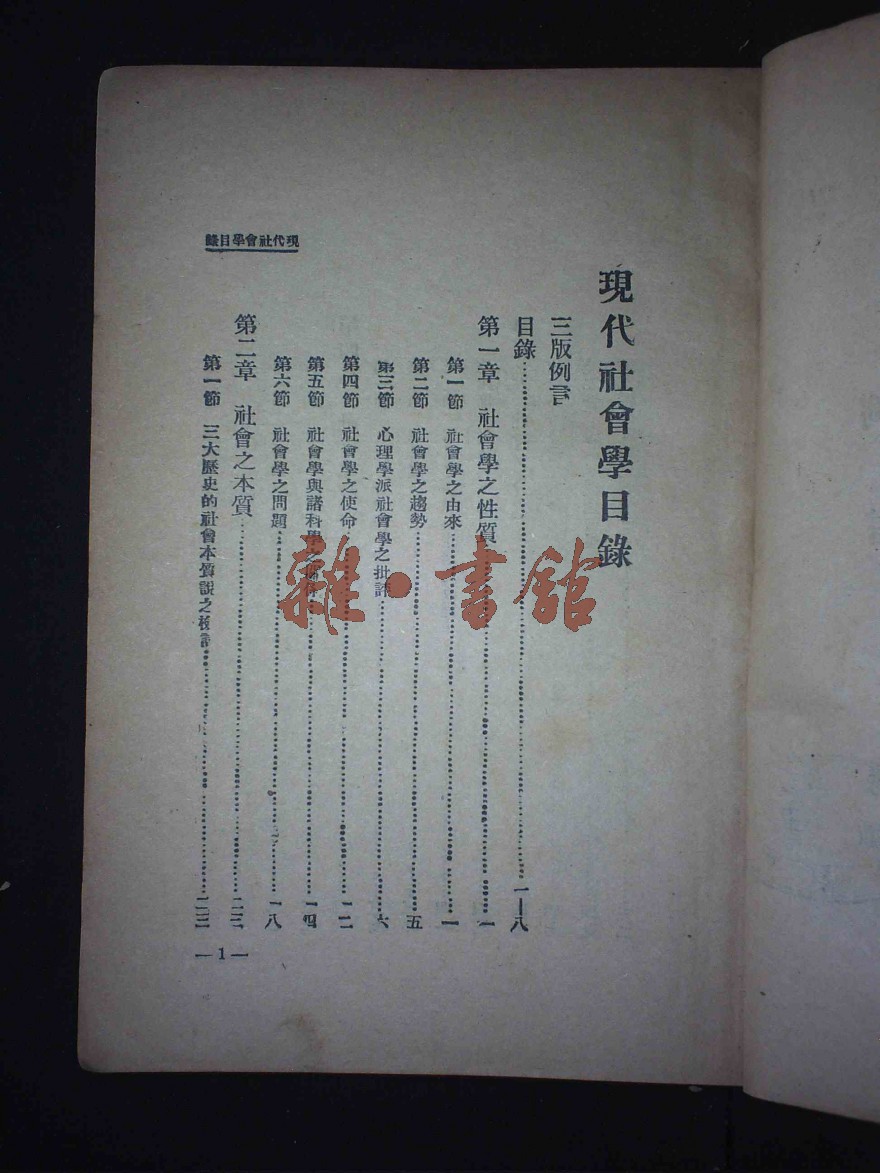 現代社會學目錄
現代社會學目錄
三版例言
目錄……一—八
第一章 社會學之性質……一
第一節 社會學之由來……一
第二節 社會學之趨勢……五
第三節 心理學派社會學之批評……六
第四節 社會學之使命……一二
第五節 社會學與諸科學之關係……一四
第六節 社會學之問題……一八
第二章 社會之本質……二三
第一節 三大歷史的社會本質說之檢討……二三
—1—
雜·書館